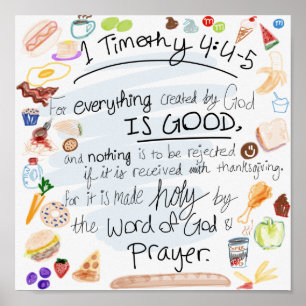 1 Timothy 4:4-5
For everything created by God
IS GOOD,
and nothing is to be rejected
if it is received with thanksgiving.
for it is made holy by
the Word of God &
Prayer.